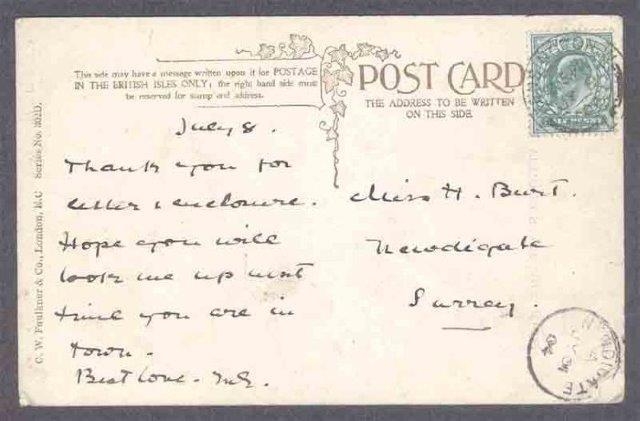 This side may have a message written upon it for POSTAGE
IN THE BRITISH ISLES ONLY; the right hand side must
be reserved for stamp and address.
POST CARD
THE ADDRESS TO BE WRITTEN
ON THIS SIDE.
July 8.
Thank you for
letter & enclosure.
Hope you will
look me up next
time you are in
town.
Best love.
Miss H. Burt.
Newdigate
Surrey.
C. W. Faulkner & Co., London, E.C Series No.
NEWDIGATE
04